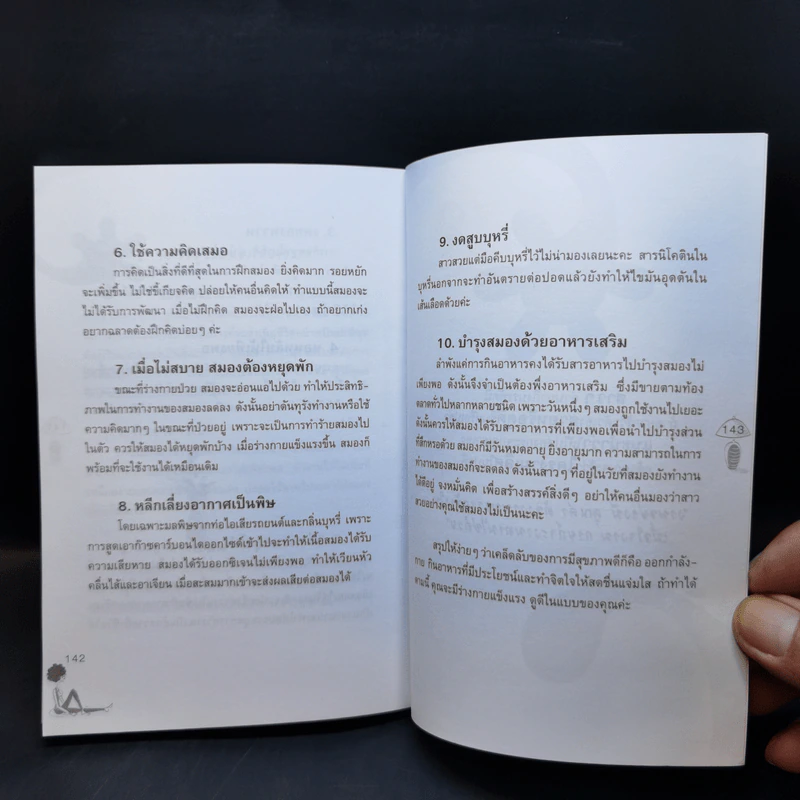 6. ใช้ความคิดเสมอ
การคิดเป็นสิ่งที่ดีที่สุดในการฝึกสมอง ยิ่งคิดมาก รอยหยัก
จะเพิ่มขึ้น ไม่ใช่ขี้เกียจคิด ปล่อยให้คนอื่นคิดให้ ทำแบบนี้สมองจะ
ไม่ได้รับการพัฒนา เมื่อไม่ฝึกคิด สมองจะฝ่อไปเอง ถ้าอยากเก่ง
อยากฉลาดต้องฝึกคิดบ่อยๆ ค่ะ
7. เมื่อไม่สบาย สมองต้องหยุดพัก
ขณะที่ร่างกายป่วย สมองจะอ่อนแอไปด้วย ทำให้ประสิทธิ-
ภาพในการทำงานของสมองลดลง ดังนั้นอย่าดันทุรังทำงานหรือใช้
ความคิดมากๆ ในขณะที่ป่วยอยู่ เพราะจะเป็นการทำร้ายสมองไป
ในตัว ควรให้สมองได้หยุดพักบ้าง เมื่อร่างกายแข็งแรงขึ้น สมองก็
พร้อมที่จะใช้งานได้เหมือนเดิม
8. หลีกเลี่ยงอากาศเป็นพิษ
โดยเฉพาะมลพิษจากท่อไอเสียรถยนต์และกลิ่นบุหรี่ เพราะ
การสูดเอาก๊าซคาร์บอนไดออกไซต์เข้าไปจะทำให้เนื้อสมองได้รับ
ความเสียหาย สมองได้รับออกซิเจนไม่เพียงพอ ทำให้เวียนหัว
คลื่นไส้และอาเจียน เมื่อสะสมมากเข้าจะส่งผลเสียต่อสมองได้
142
9. งดสูบบุหรี่
สาวสวยแต่มือคีบบุหรี่ไว้ไม่น่ามองเลยนะคะ สารนิโคตินใน
บุหรี่นอกจากจะทำอันตรายต่อปอดแล้วยังทำให้ไขมันอุดตันใน
เส้นเลือดด้วยค่ะ
10. บำรุงสมองด้วยอาหารเสริม
ลำพังแค่การกินอาหารคงได้รับสารอาหารไปบำรุงสมองไม่
เพียงพอ ดังนั้นจึงจำเป็นต้องพึ่งอาหารเสริม ซึ่งมีขายตามท้อง
ตลาดทั่วไปหลากหลายชนิด เพราะวันหนึ่งๆ สมองถูกใช้งานไปเยอะ
ดังนั้นควรให้สมองได้รับสารอาหารที่เพียงพอเพื่อนำไปบำรุงส่วน
ที่สึกหรอด้วย สมองก็มีวันหมดอายุ ยิ่งอายุมาก ความสามารถในการ
ทำงานของสมองก็จะลดลง ดังนั้นสาวๆ ที่อยู่ในวัยที่สมองยังทำงาน
ได้ดีอยู่ จงหมั่นคิด เพื่อสร้างสรรค์สิ่งดีๆ อย่าให้คนอื่นมองว่าสาว
สวยอย่างคุณใช้สมองไม่เป็นนะคะ
สรุปให้ง่ายๆ ว่าเคล็ดลับของการมีสุขภาพดีก็คือ ออกกำลัง-
กาย กินอาหารที่มีประโยชน์และทำจิตใจให้สดชื่นแจ่มใส ถ้าทำได้
ตามนี้ คุณจะมีร่างกายแข็งแรง ดูดีในแบบของคุณค่ะ
143